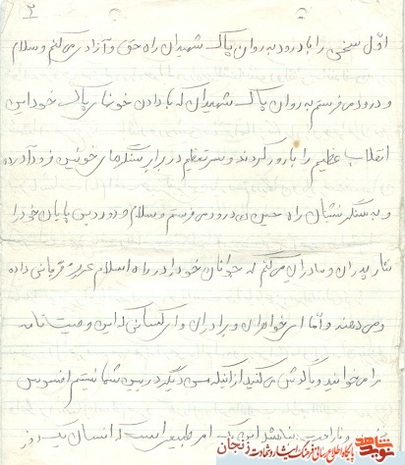 ۲
اول سخنی را با درود به روان پاک شهیدان راه حق و آزادی می‌کنم و سلام
و درود می‌فرستم به روان پاک شهیدان که با دادن خونهای پاک خود این
انقلاب عظیم را بارور کردند و سر تعظیم در برابر سنگرهای خونین فرود آورده
و به سنگرنشینان راه حسین درود می‌فرستم و سلام و درود بی پایان خود را
نثار پدران و مادران می‌کنم که جوانان خود را در راه اسلام عزیز قربانی داده
و می دهند و اما ای خواهران و برادران و ای کسانی که این وصیت نامه
را می‌خوانید و یا گوش می‌کنید از اینکه من دیگر در بین شما نیستم افسوس
و ناراحت نباشید این یک امر طبیعی است که انسان یک روز
نوید شاهد
پایگاه اطلاع رسانی فرهنگ ایثار و شهادت زنجان